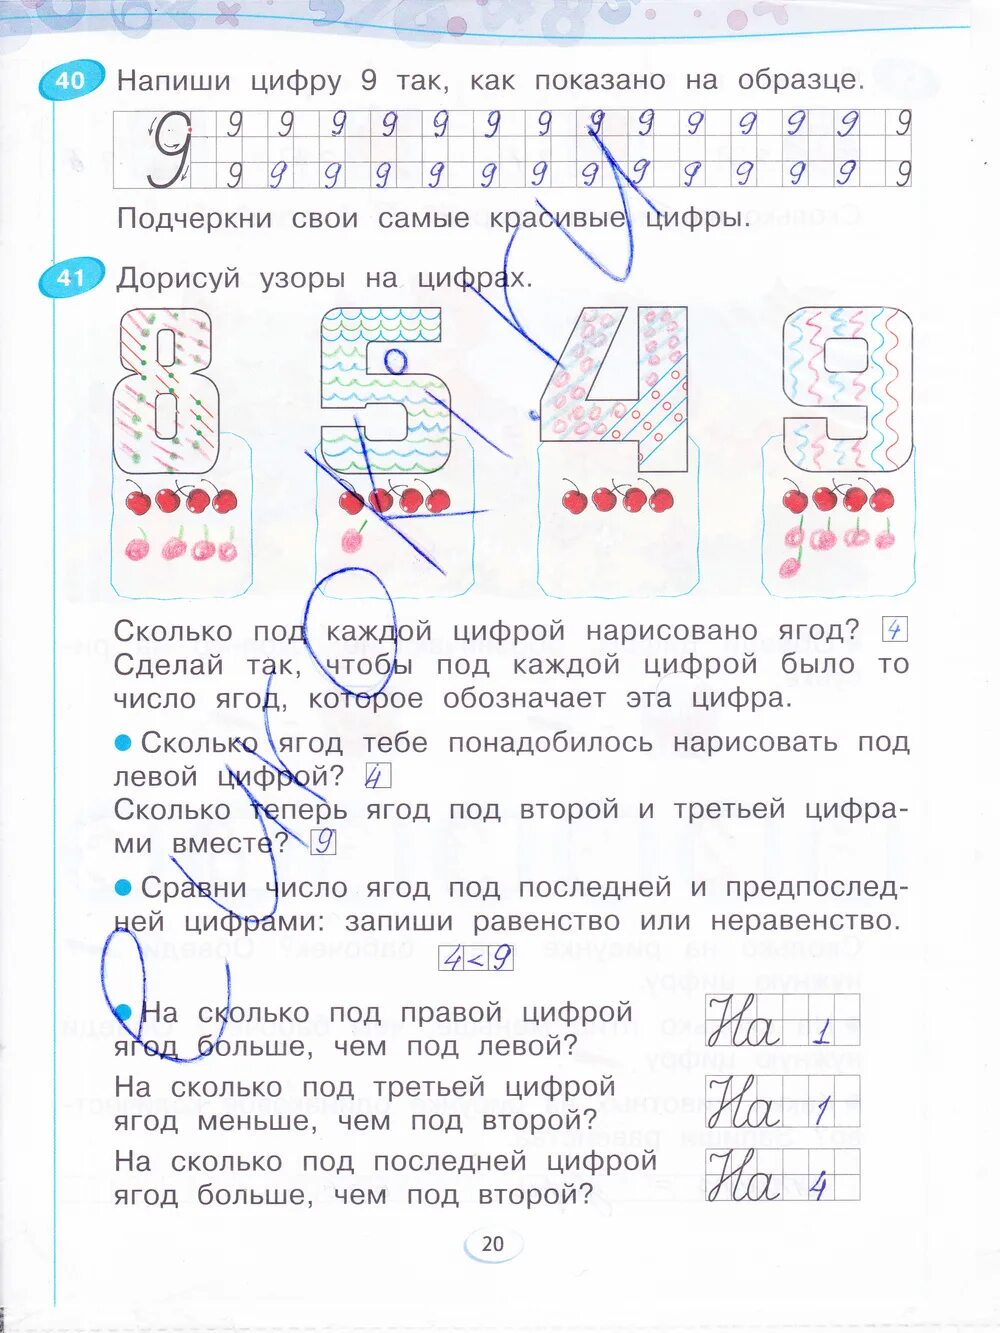 40 Напиши цифру 9 так, как показано на образце.
9 9 9 9 9 9 9 9 9 9 9 9 9 9 9
9 9 9 9 9 9 9 9 9 9 9 9 9 9
Подчеркни свои самые красивые цифры.
41 Дорисуй узоры на цифрах.
8 5 4 9
Сколько под каждой цифрой нарисовано ягод? 4
Сделай так, чтобы под каждой цифрой было то
число ягод, которое обозначает эта цифра.
Сколько ягод тебе понадобилось нарисовать под
левой цифрой? 4
Сколько теперь ягод под второй и третьей цифра-
ми вместе? 9
Сравни число ягод под последней и предпослед-
ней цифрами: запиши равенство или неравенство.
4<9
На сколько под правой цифрой
ягод больше, чем под левой? На 1
На сколько под третьей цифрой
ягод меньше, чем под второй? На 1
На сколько под последней цифрой
ягод больше, чем под второй? На 4
20